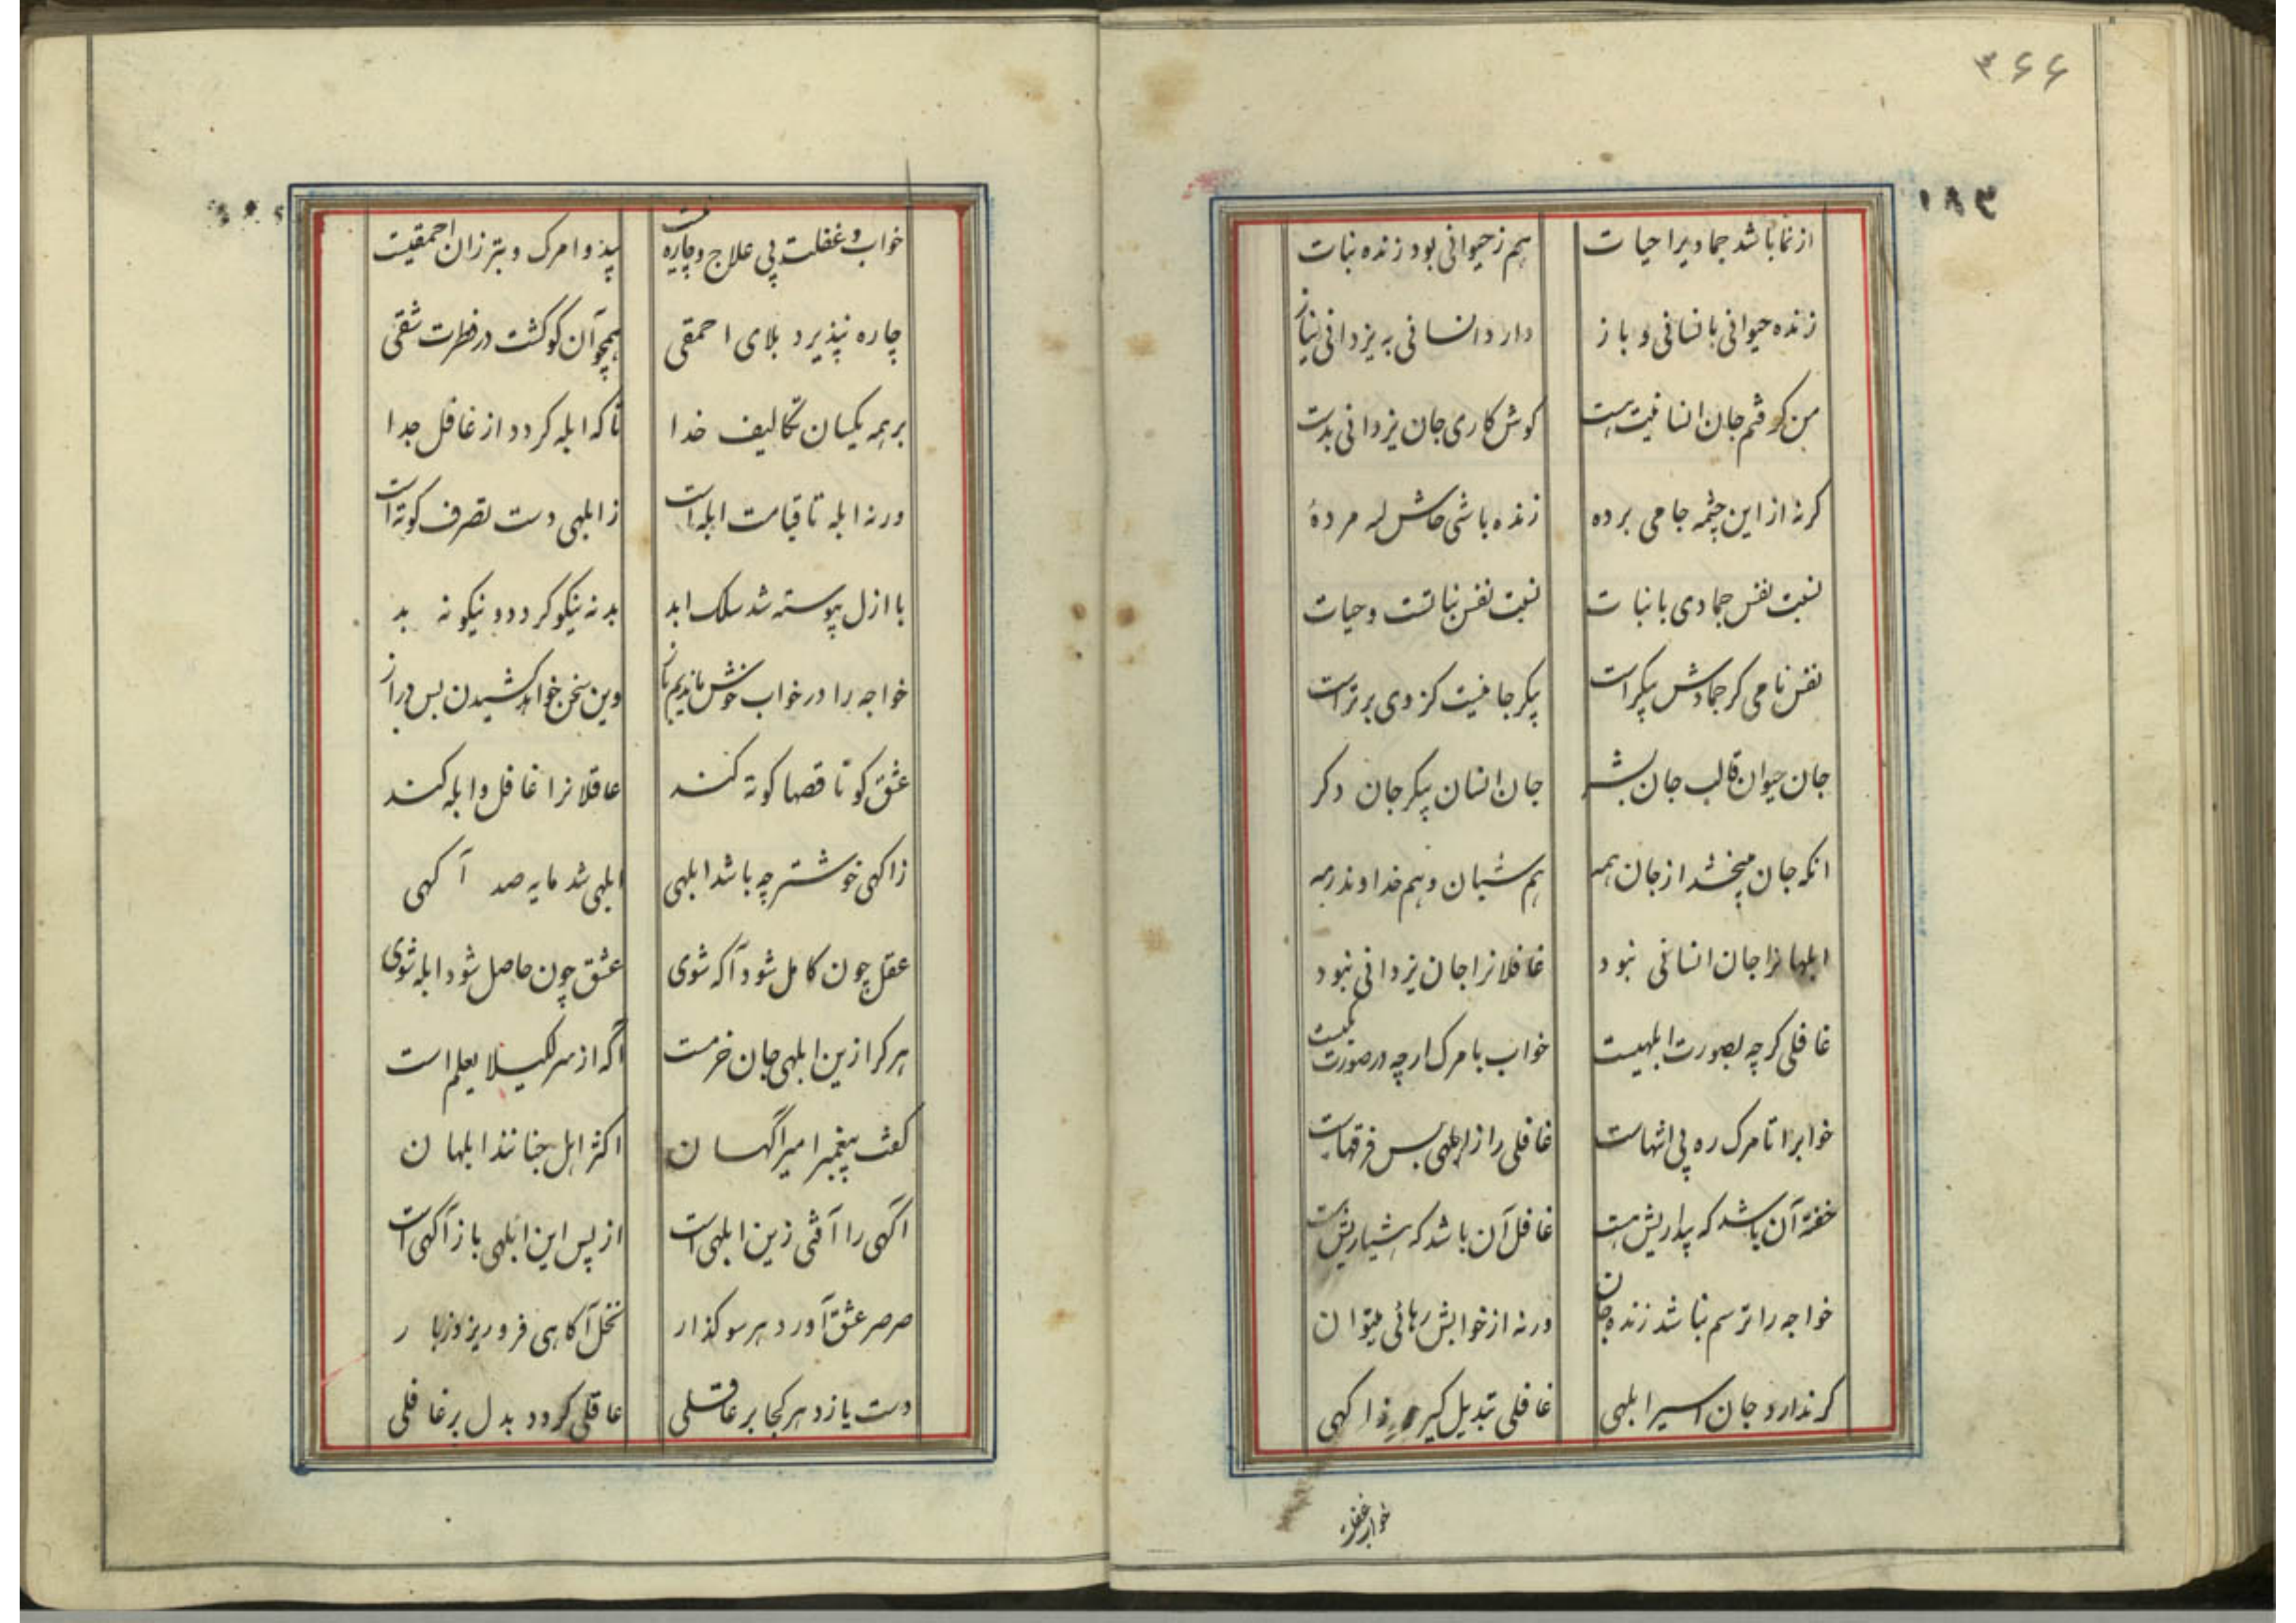 ۳۶۶
۱۸۳
از نما باشد جمادیرا حیات هم ز حیوانی بود زنده نبات
زنده حیوانی بانسانی و باز دارد انسانی به یزدانی نیاز
من کرفتم جان انسانیت هست کوش کاری جان یزدانی بدست
کرنه از این چشمه جامی برده زنده باشی حاش لله مردهٔ
نسبت نفس جمادی با نبات نسبت نفس نباتست و حیات
نفس نامی کر جمادش پیکر است پیکر جانیست کز وی برتر است
جان حیوان قالب جان بشر جان انسان پیکر جان دکر
انکه جان میبخشد از جان همه هم شبان و هم خداوند رمه
ابلهانرا جان انسانی نبود غافلانرا جان یزدانی نبود
غافلی کرچه بصورت ابلهیست خواب با مرک ارچه در صورت یکیست
خوابرا تا مرک ره بی انتهاست غافلی را از ابلهی بس فرقهاست
خفته آن باشد که بیداریش هست غافل آن باشد که هشیاریش هست
خواجه را ترسم نباشد زنده جان ورنه از خوابش رهائی میتوان
کر ندارد جان اسیر ابلهی غافلی تبدیل کیرد ز اکهی
خواب غفلت
خواب و غفلت بی علاج و چاره نیست بیدوا مرک و بتر زان احمقیت
چاره نپذیرد بلای احمقی همچو آن کو کشت در فطرت شقی
بر همه یکسان تکالیف خدا تا که ابله کردد از غافل جدا
ورنه ابله تا قیامت ابله است ز ابلهی دست تصرف کوته است
با ازل پیوسته شد سلک ابد بد نه نیکو کردد و نیکو نه بد
خواجه را در خواب خوش ماندیم باز وین سخن خواهد کشیدن بس دراز
عشق کو تا قصها کوته کند عاقلانرا غافل و ابله کند
ز اکهی خوشتر چه باشد ابلهی ابلهی شد مایه صد آکهی
عقل چون کامل شود آکه شوی عشق چون حاصل شود ابله شوی
هر کرا زین ابلهی جان خرمست آکه از سر لکیلا یعلم است
کفت پیغمبر امیر آکهان اکثر اهل جنانند ابلهان
آکهی را آفتی زین ابلهی است از پس این ابلهی باز آکهی است
صرصر عشق آورد هر سو کذار نخل آکاهی فرو ریزد ز بار
دست یازد هر کجا بر عاقلی عاقلی کردد بدل بر غافلی